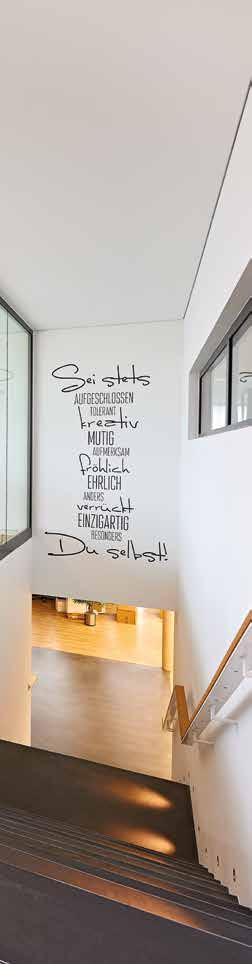 Sei stets
AUFGESCHLOSSEN
TOLERANT
kreativ
MUTIG
AUFMERKSAM
fröhlich
EHRLICH
ANDERS
verrückt
EINZIGARTIG
BESONDERS
Du selbst!